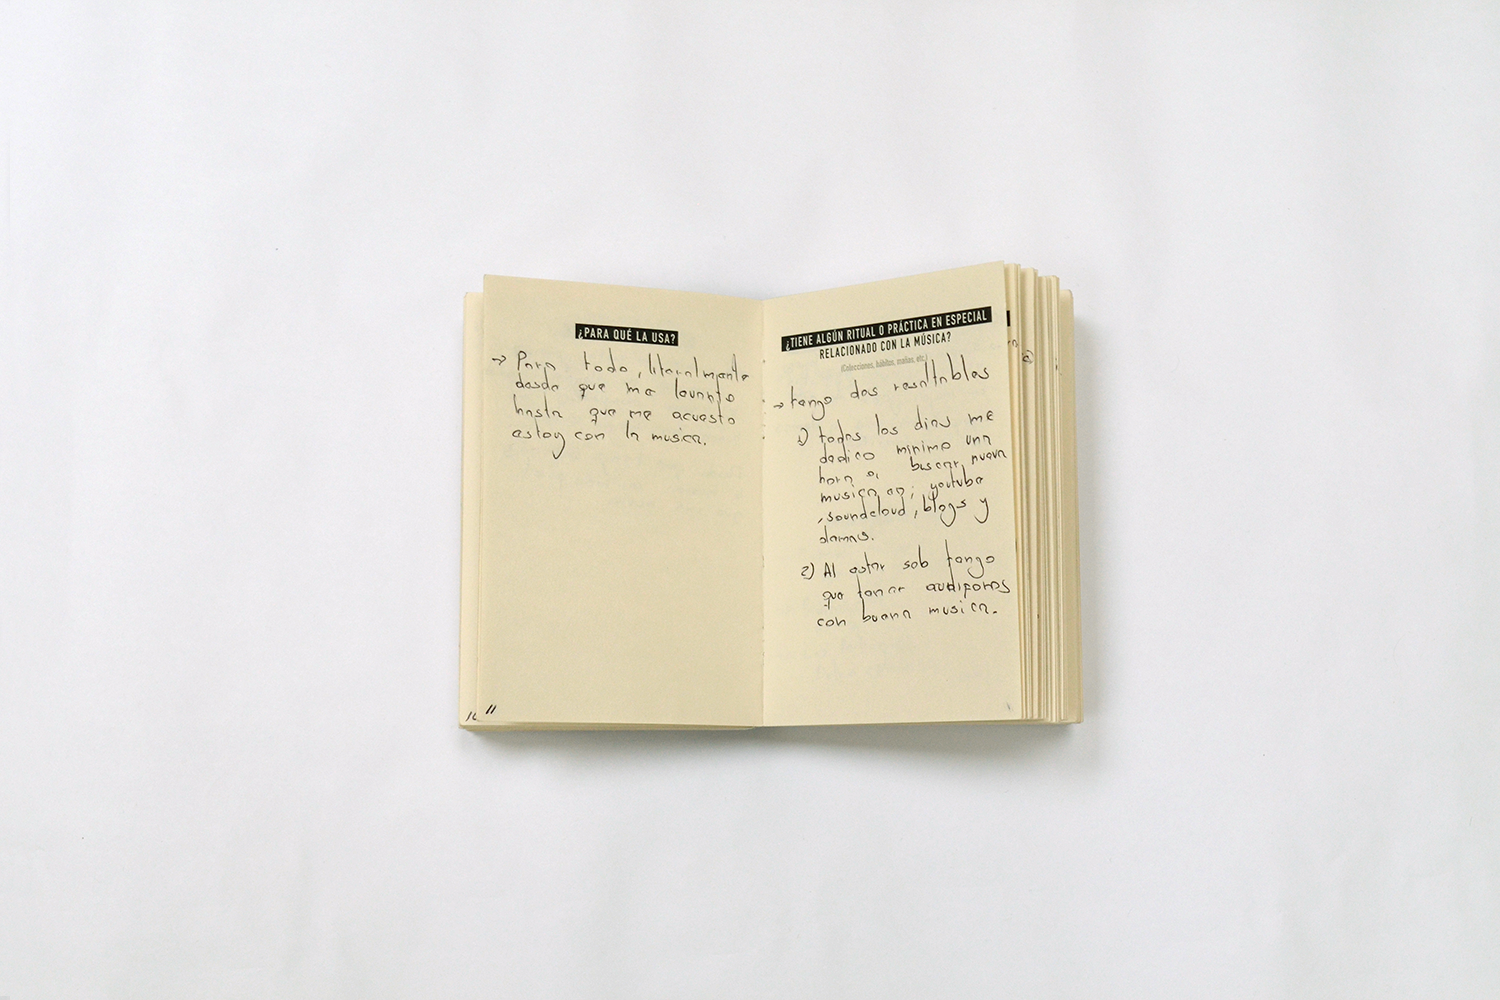 ¿PARA QUÉ LA USA?
→ Para todo, literalmente
desde que me levanto
hasta que me acuesto
estoy con la musica.
11
¿TIENE ALGÚN RITUAL O PRÁCTICA EN ESPECIAL
RELACIONADO CON LA MÚSICA?
(Colecciones, hábitos, mañas, etc.)
→ tengo dos resaltables
1) todos los dias me
dedico minimo una
hora a buscar nueva
musica en; youtube
, soundcloud, blogs y
demas.
2) Al estar solo tengo
que tener audifonos
con buena musica.